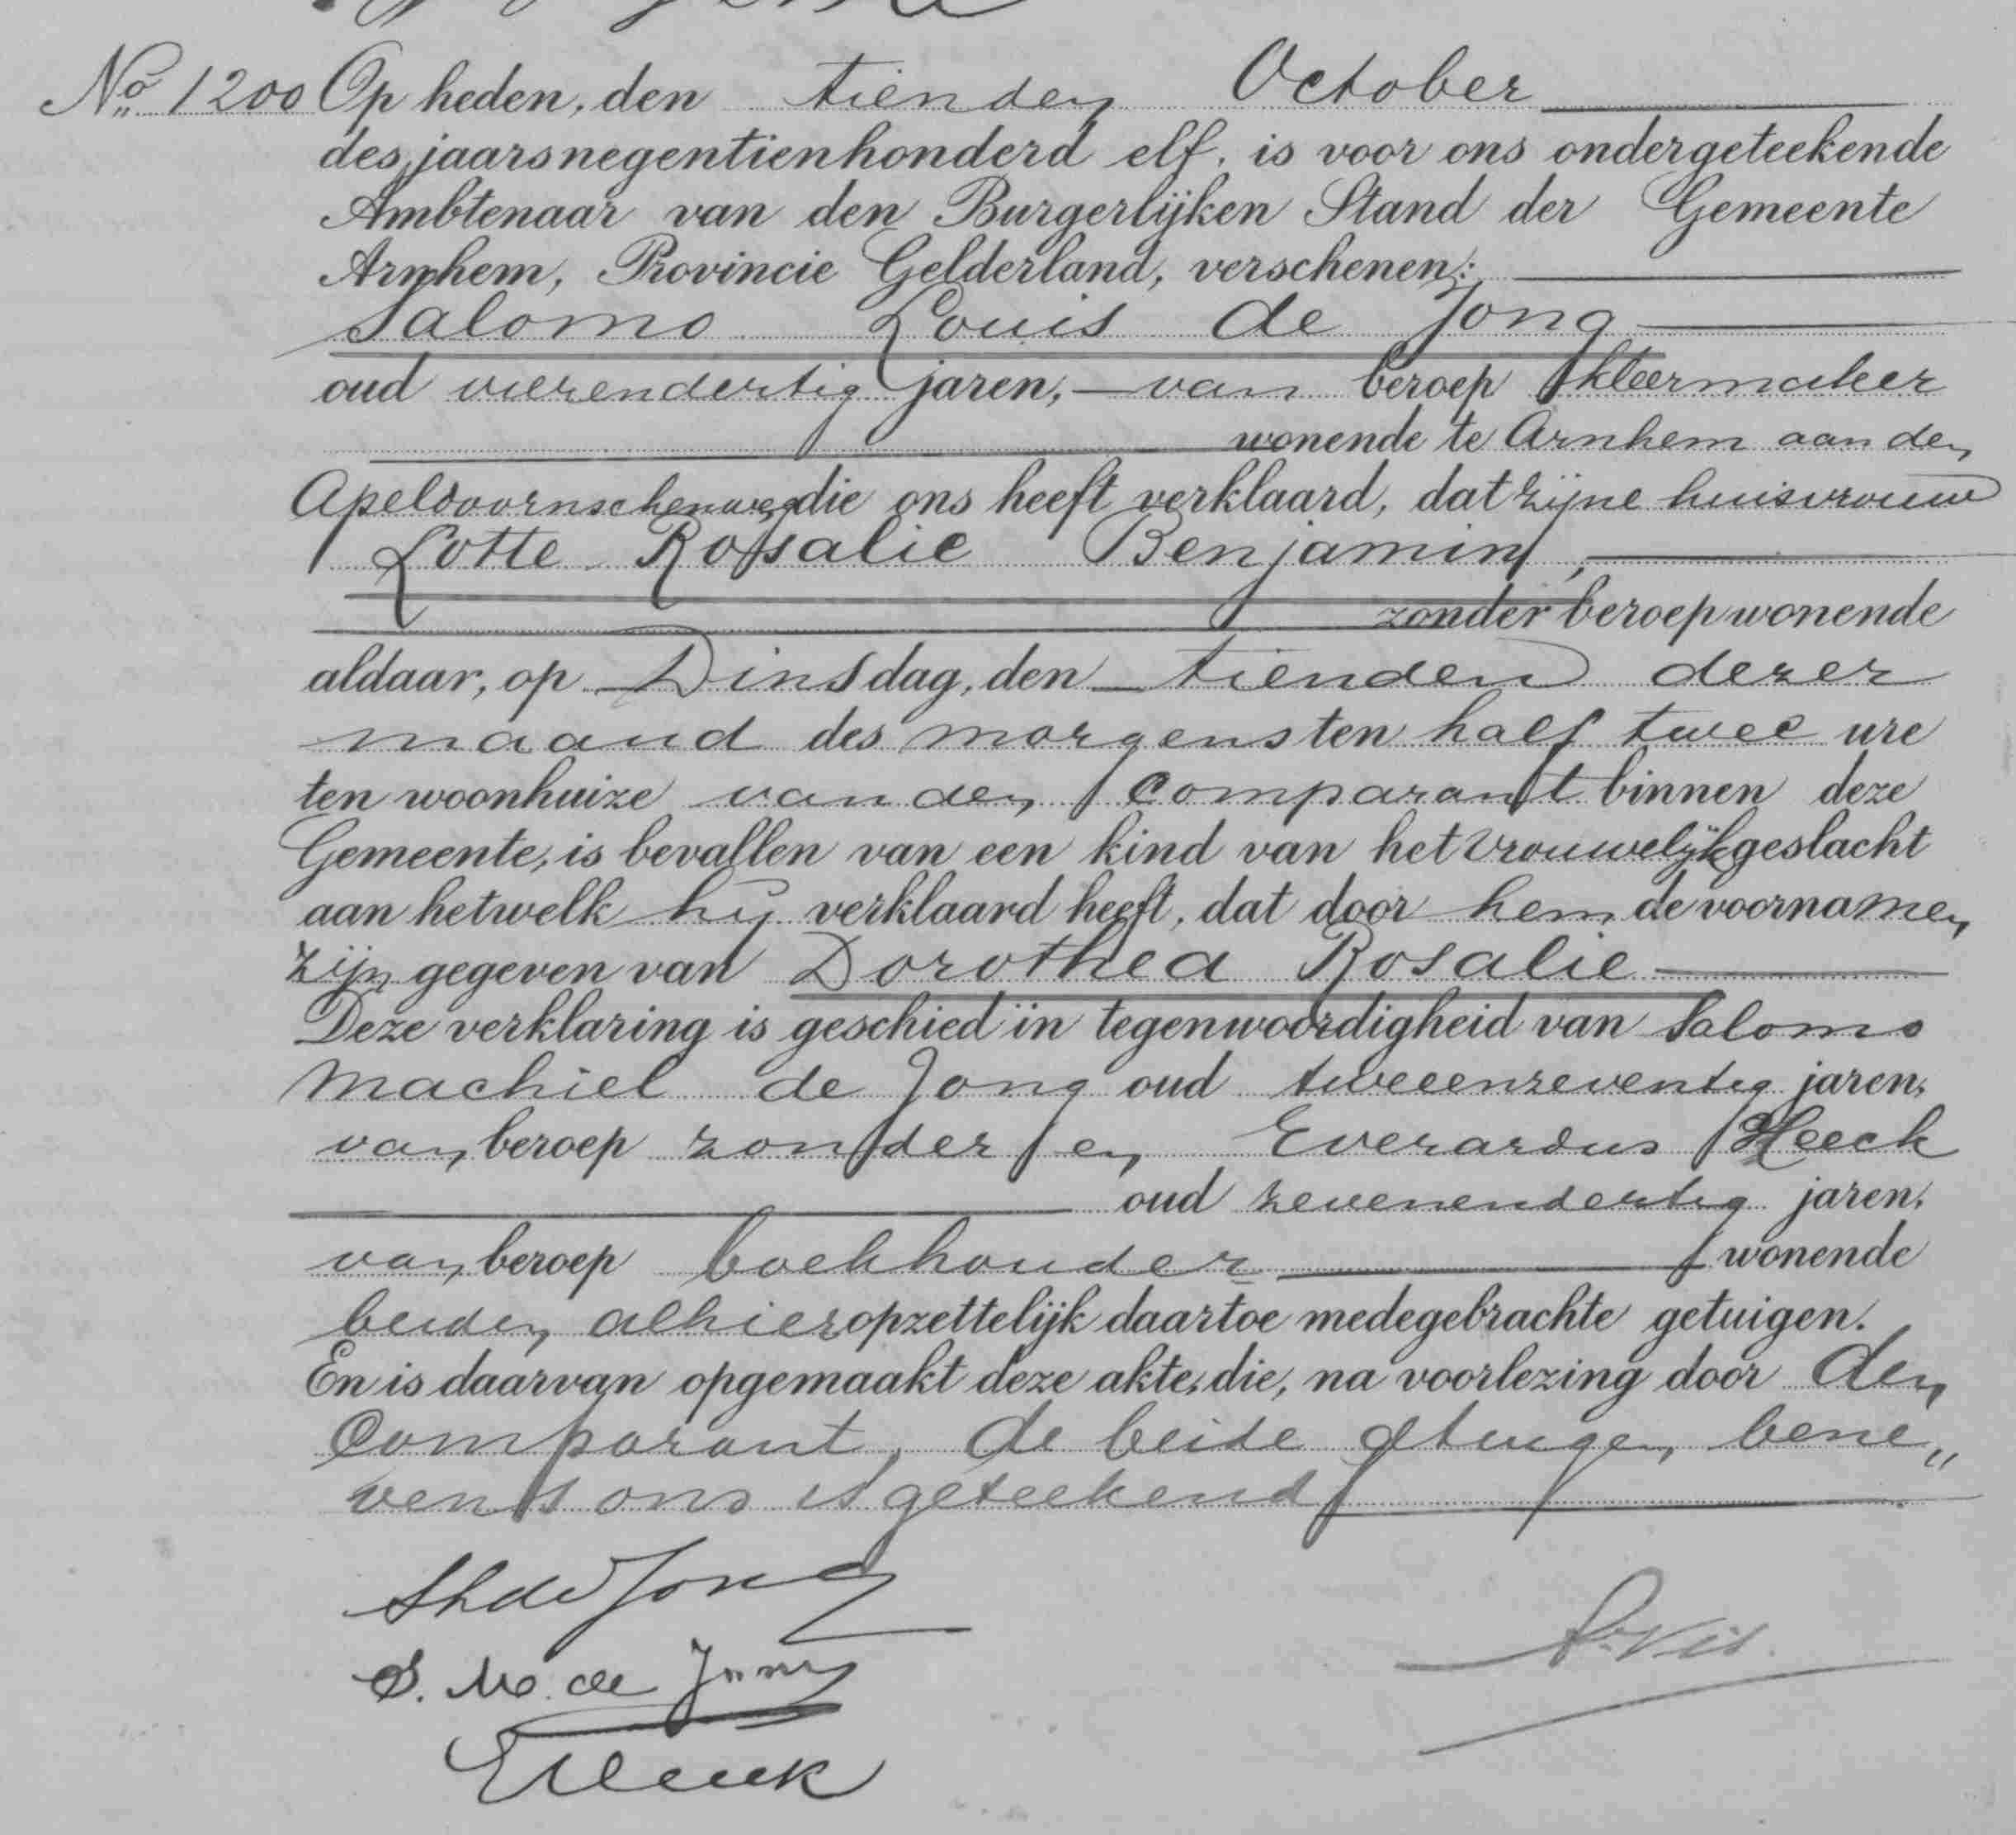 No. 1200 Op heden, den tienden October
des jaars negentienhonderd elf, is voor ons ondergeteekende
Ambtenaar van den Burgerlijken Stand der Gemeente
Arnhem, Provincie Gelderland, verschenen:
Salomo Louis de Jong
oud vierendertig jaren, van beroep kleermaker
wonende te Arnhem aan den
Apeldoornschenweg die ons heeft verklaard, dat zijne huisvrouw
Lotte Rosalie Benjamin,
zonder beroep wonende
aldaar, op Dinsdag, den tienden dezer
maand des morgens ten half twee ure
ten woonhuize van den Comparant binnen deze
Gemeente, is bevallen van een kind van het vrouwelijk geslacht
aan hetwelk hij verklaard heeft, dat door hem de voornamen
zijn gegeven van Dorothea Rosalie
Deze verklaring is geschied in tegenwoordigheid van Salomo
Machiel de Jong oud tweeenzeventig jaren,
van beroep zonder en Everardus Heeck
oud zevenendertig jaren,
van beroep boekhouder wonende
beiden alhier opzettelijk daartoe medegebrachte getuigen.
En is daarvan opgemaakt deze akte, die, na voorlezing door den
Comparant, de beide getuigen bene„
vens ons is geteekend
SLde Jong
S. M. de Jong